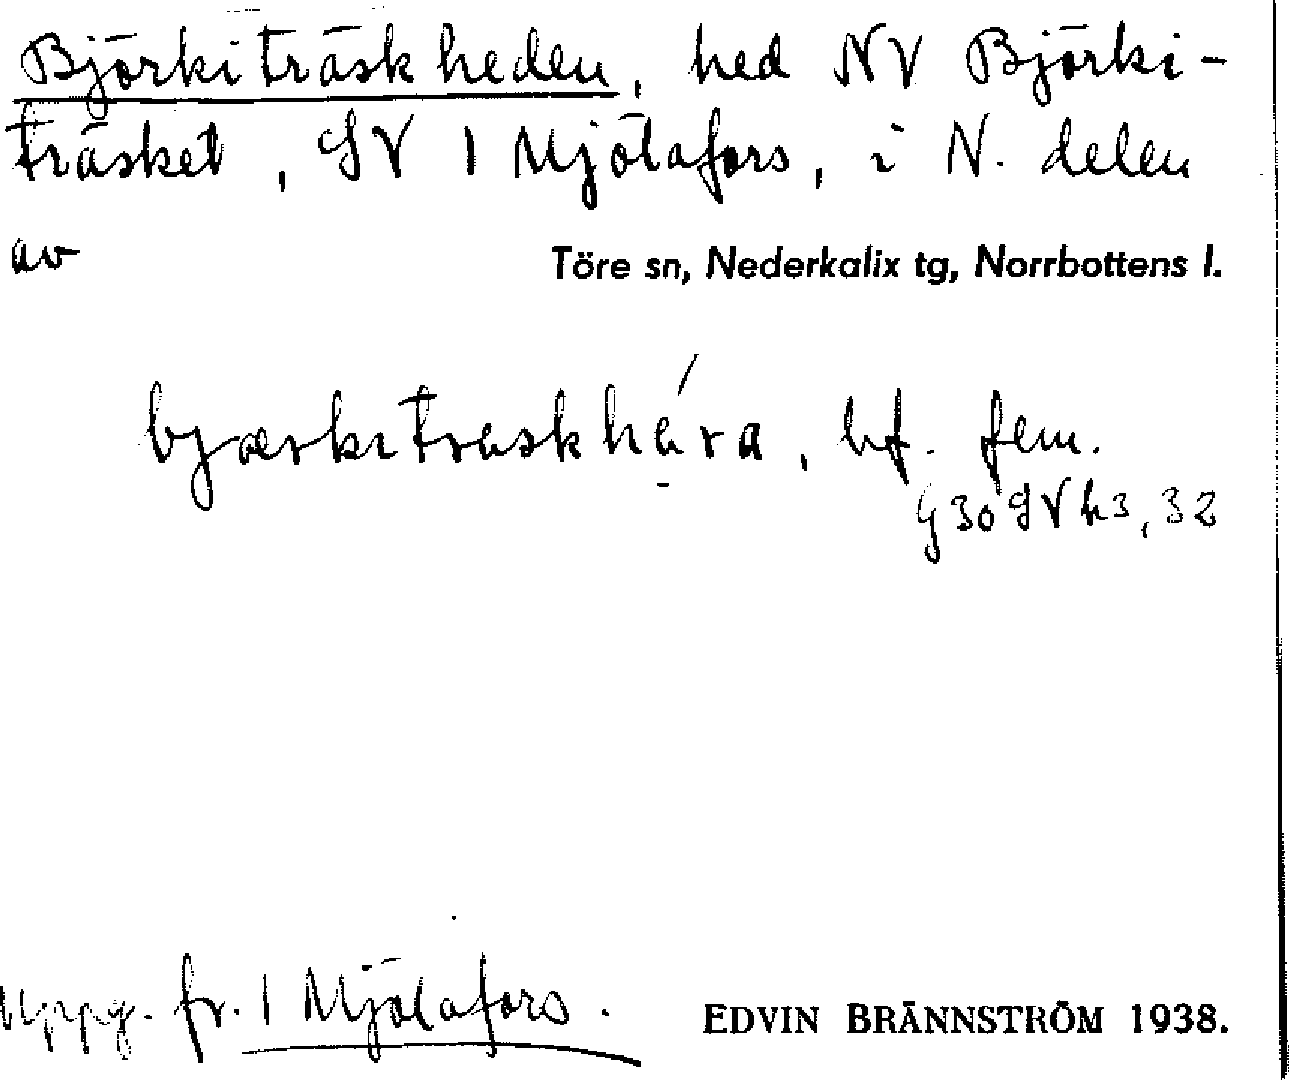 Björkiträskheden, hed NV Björki-
träsket, SV 1 Mjölafors, i N. delen
av Töre sn, Nederkalix tg, Norrbottens l.
bjærkitraskhéra, bf. fem.
G 30 SV h3, 32
Uppg. fr. 1 Mjölafors. EDVIN BRÄNNSTRÖM 1938.